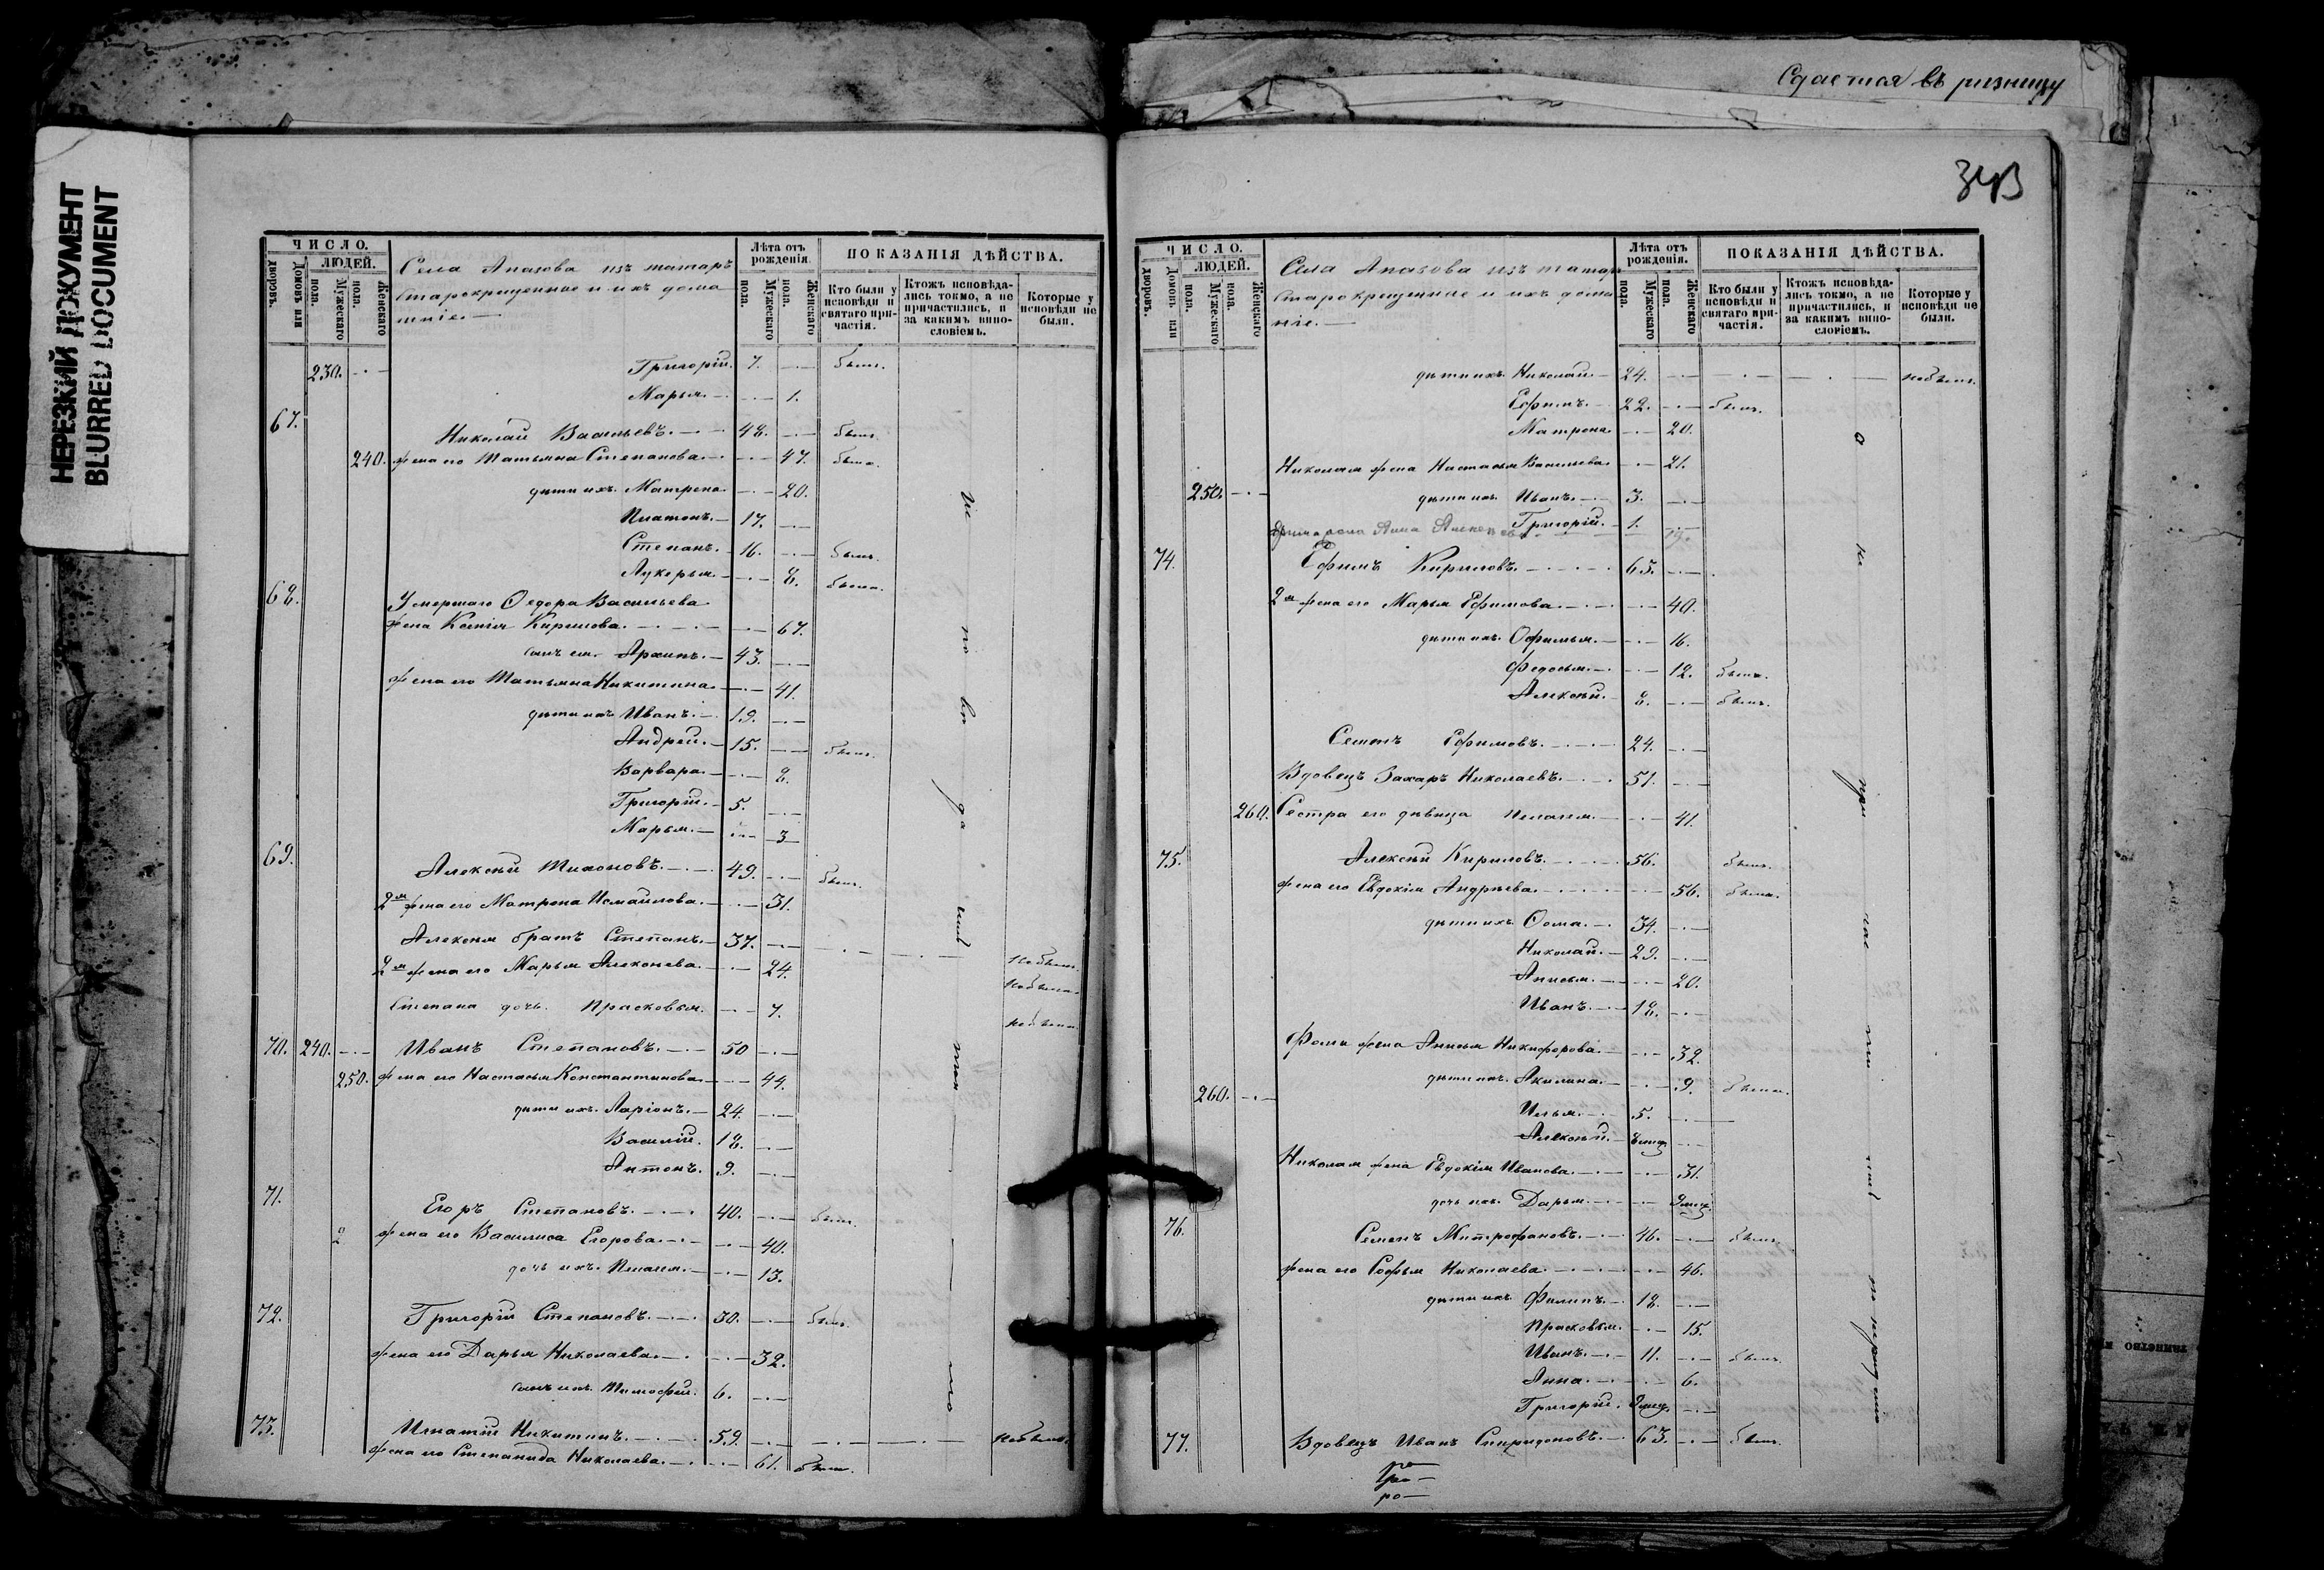 Сдается въ ризницу
НЕРЕЗКИЙ ДОКУМЕНТ
BLURRED DOCUMENT
ЧИСЛО.
ЛЮДЕЙ.
Домовъ или дворовъ.
Мужескаго пола.
Женскаго пола.
Села Апазова изъ татаръ
старокрещенные и ихъ дома
шніе. —
Лѣта отъ рожденія.
Мужескаго пола.
Женскаго пола.
ПОКАЗАНІЯ ДѢЙСТВА.
Кто были у исповѣди и святаго при-частія.
Ктожъ исповѣда-лись токмо, а не причастились, и за какимъ вино-словіемъ.
Которые у исповѣди не были.
230. Григорій. 7. былъ.
Марья. 1.
67. Николай Васильевъ. 48. былъ.
240. жена его Татьяна Степанова. 47. была.
дѣти ихъ. Матрена. 20.
Платонъ. 17.
Степанъ. 16. былъ.
Лукерья. 8. была.
68. Умершаго Ѳедора Васильева
жена Ксенія Кирилова. 67.
сынъ ея. Архипъ. 43.
жена его Татьяна Никитина. 41.
дѣти ихъ Иванъ. 19.
Андрей. 15. былъ.
Варвара. 8.
Григорій. 5.
Марья. 3
69. Алексѣй Тихоновъ. 49. былъ.
2я жена его Матрена Исмаилова. 31.
Алексѣя братъ Степанъ. 37. небылъ.
2я жена его Марья Алексѣева. 24. небыла.
Степана дочь. Прасковья. 7. небыла.
70. 240. Иванъ Степановъ. 50
250. жена его Настасья Константинова. 44.
дѣти ихъ. Ларіонъ. 24.
Василій. 18.
Антонъ. 9.
71. Егоръ Степановъ. 40. былъ.
жена его Василиса Егорова. 40.
дочь ихъ. Пелагея. 13.
72. Григорій Степановъ. 30. былъ.
жена его Дарья Николаева. 32.
сынъ ихъ. Тимофей. 6.
73. Игнатій Никитинъ. 59. небылъ.
жена его Степанида Николаева. 61. была.
343
ЧИСЛО.
ЛЮДЕЙ.
Домовъ или дворовъ.
Мужескаго пола.
Женскаго пола.
Села Апазова изъ татаръ
старокрещенные и ихъ домаш
ніе. —
Лѣта отъ рожденія.
Мужескаго пола.
Женскаго пола.
ПОКАЗАНІЯ ДѢЙСТВА.
Кто были у исповѣди и святаго при-частія.
Ктожъ исповѣда-лись токмо, а не причастились, и за какимъ вино-словіемъ.
Которые у исповѣди не были.
дѣти ихъ. Николай. 24. небылъ.
Ефимъ. 22. былъ.
Матрена. 20.
Николая жена Настасья Васильева. 21.
250. дѣти ихъ. Иванъ. 3.
Григорій. 1.
жена Анна Алексѣева 19.
74. Ефимъ Кириловъ. 65.
2я жена его Марья Ефимова. 40.
дѣти ихъ. Офимья. 16.
Федосья. 12. была.
Алексѣй. 8. былъ.
Семенъ Ефимовъ. 24.
Вдовецъ Захаръ Николаевъ. 51.
260. Сестра его дѣвица Пелагея. 41.
75. Алексѣй Кириловъ. 56. былъ.
жена его Евдокія Андрѣева. 56. была.
дѣти ихъ. Ѳома. 34.
Николай. 29.
Анисья. 20.
Иванъ. 18.
Фомы жена Анисья Никифорова. 32.
дѣти ихъ. Акилина. 9. была.
260. Илья. 5.
Алексѣй. 8 мѣц
Николая жена Евдокія Иванова. 31.
дочь ихъ. Дарья. 9 мѣц
76. Семенъ Митрофановъ. 46. былъ.
жена его Софья Николаева. 46.
дѣти ихъ Филипъ. 18.
Прасковья. 15.
Иванъ. 11. былъ.
Анна. 6.
Григорій. 9 мѣц.
77. Вдовецъ Иванъ Спиридоновъ. 63. былъ.